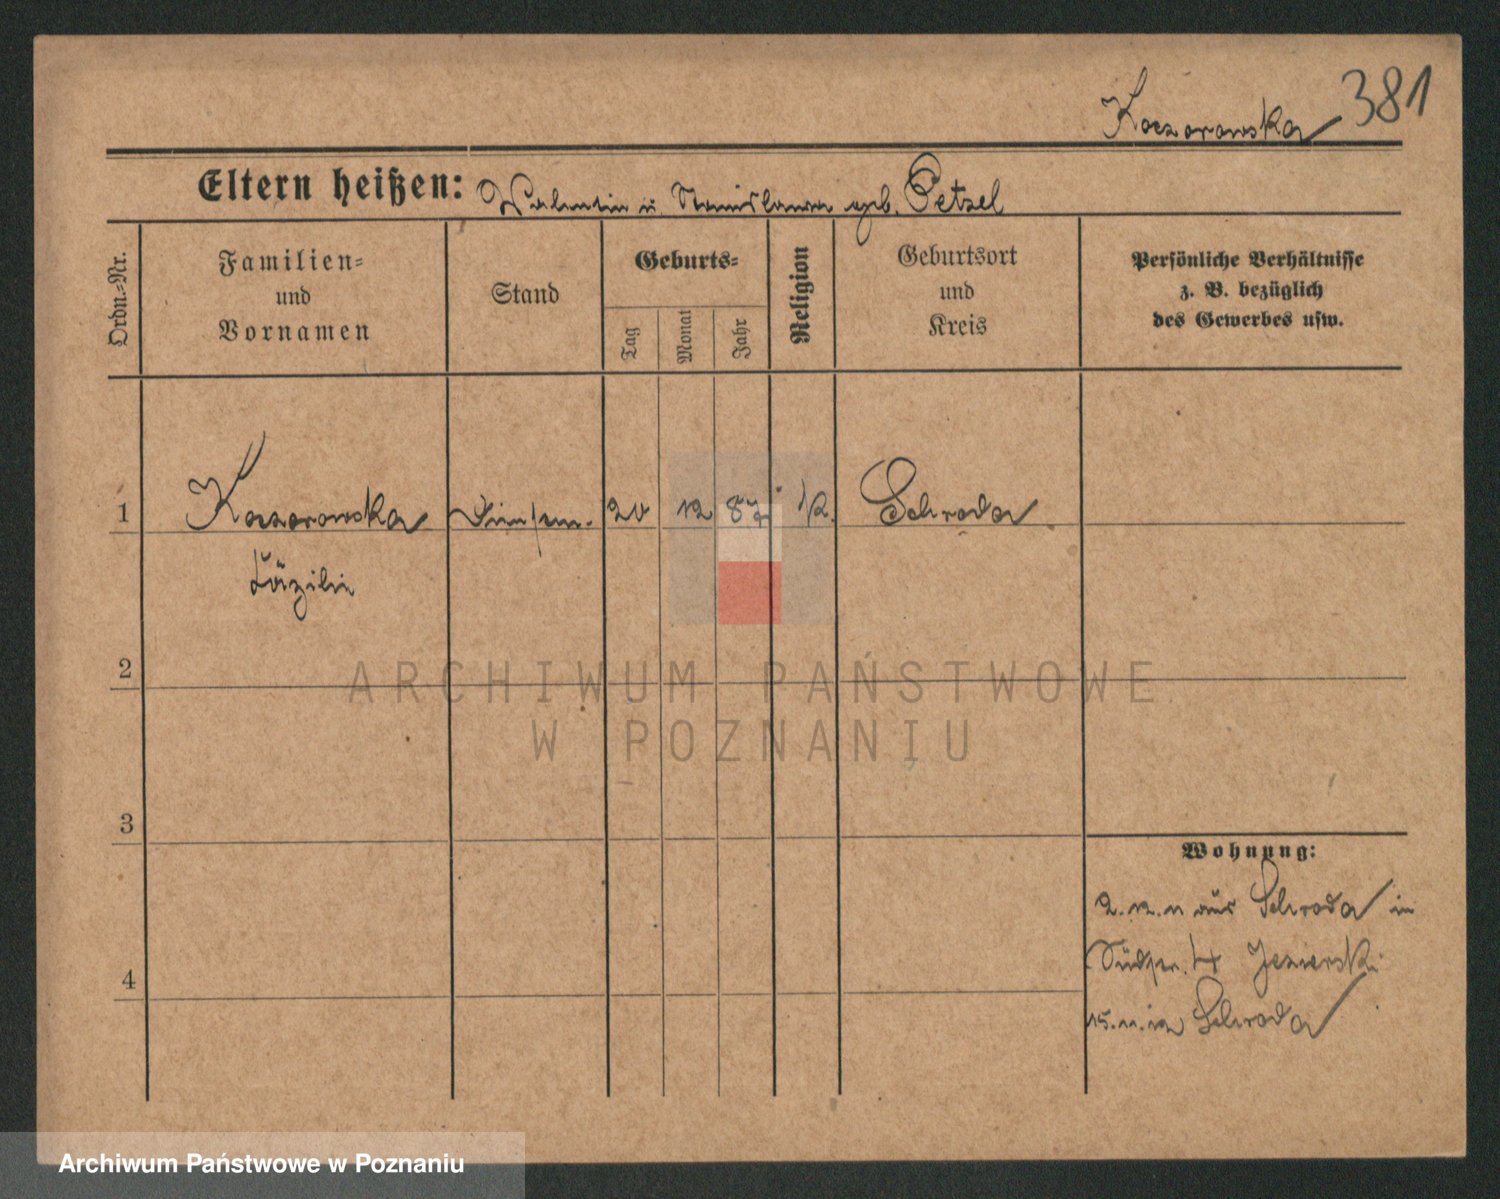 Koczorowska 381
Eltern heißen: Valentin u. Stanislawa geb. Petzel
Ordn.-Nr.
Familien-
und
Vornamen
Stand
Geburts-
Tag
Monat
Jahr
Religion
Geburtsort
und
Kreis
Persönliche Verhältnisse
z. B. bezüglich
des Gewerbes usw.
1 Koczorowska 20 12 87 k. Schroda
Cäzilie
2
3
4
Wohnung:
2. 12. 11 aus Schroda in
4 Jezierski
15. 11. 12 Schroda
ARCHIWUM PAŃSTWOWE
W POZNANIU
Archiwum Państwowe w Poznaniu